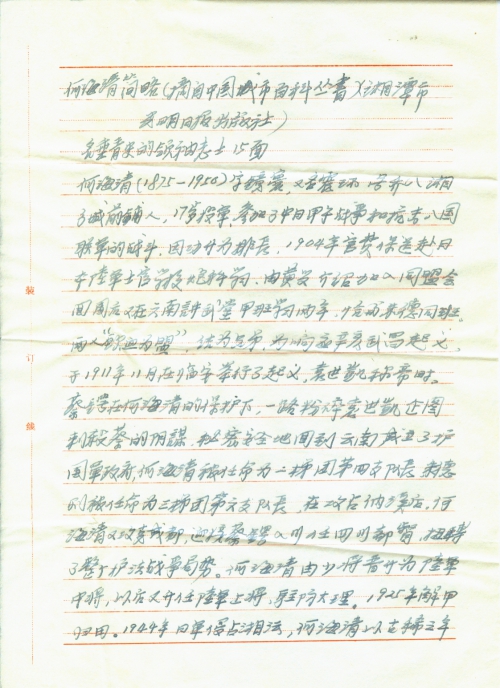 何海清简略(摘自中国城市百科丛书)(湘潭市
光明日报出版社)
名垂青史的领袖志士 15面
何海清(1875-1950)字 , 又名震环 号 八 湘
了城前铺人,17岁投军,参加了中日甲午战争和抗击八国
联军的战斗,因功升为排长,1904年官费保送赴日
本陆军士官学校 科学习,由黄兴介绍加入同盟会
回国后又在云南讲武堂甲班学习两年,恰与朱德同班。
两人"歃血为盟",结为兄弟,为响应辛亥武昌起义,
于1911年11月在临安举行了起义,袁世凯称帝时。
蔡锷在何海清的保护下,一路粉碎袁世凯企图
刺杀蔡的阴谋,秘密安全地回到云南成立了护
国军政府,何海清被任命为二梯团第四支队长 朱德
则被任命为三梯团第六支队长 在攻占纳溪后,何
海清又攻克成都,迎接蔡锷入川任四川都督,扭转
了整个护法战事局势。何海清由少将晋升为陆军
中将,以后又升任陆军上将,驻防大理。1925年解甲
归田。1944年日军侵占湘潭,何海清以古稀之年